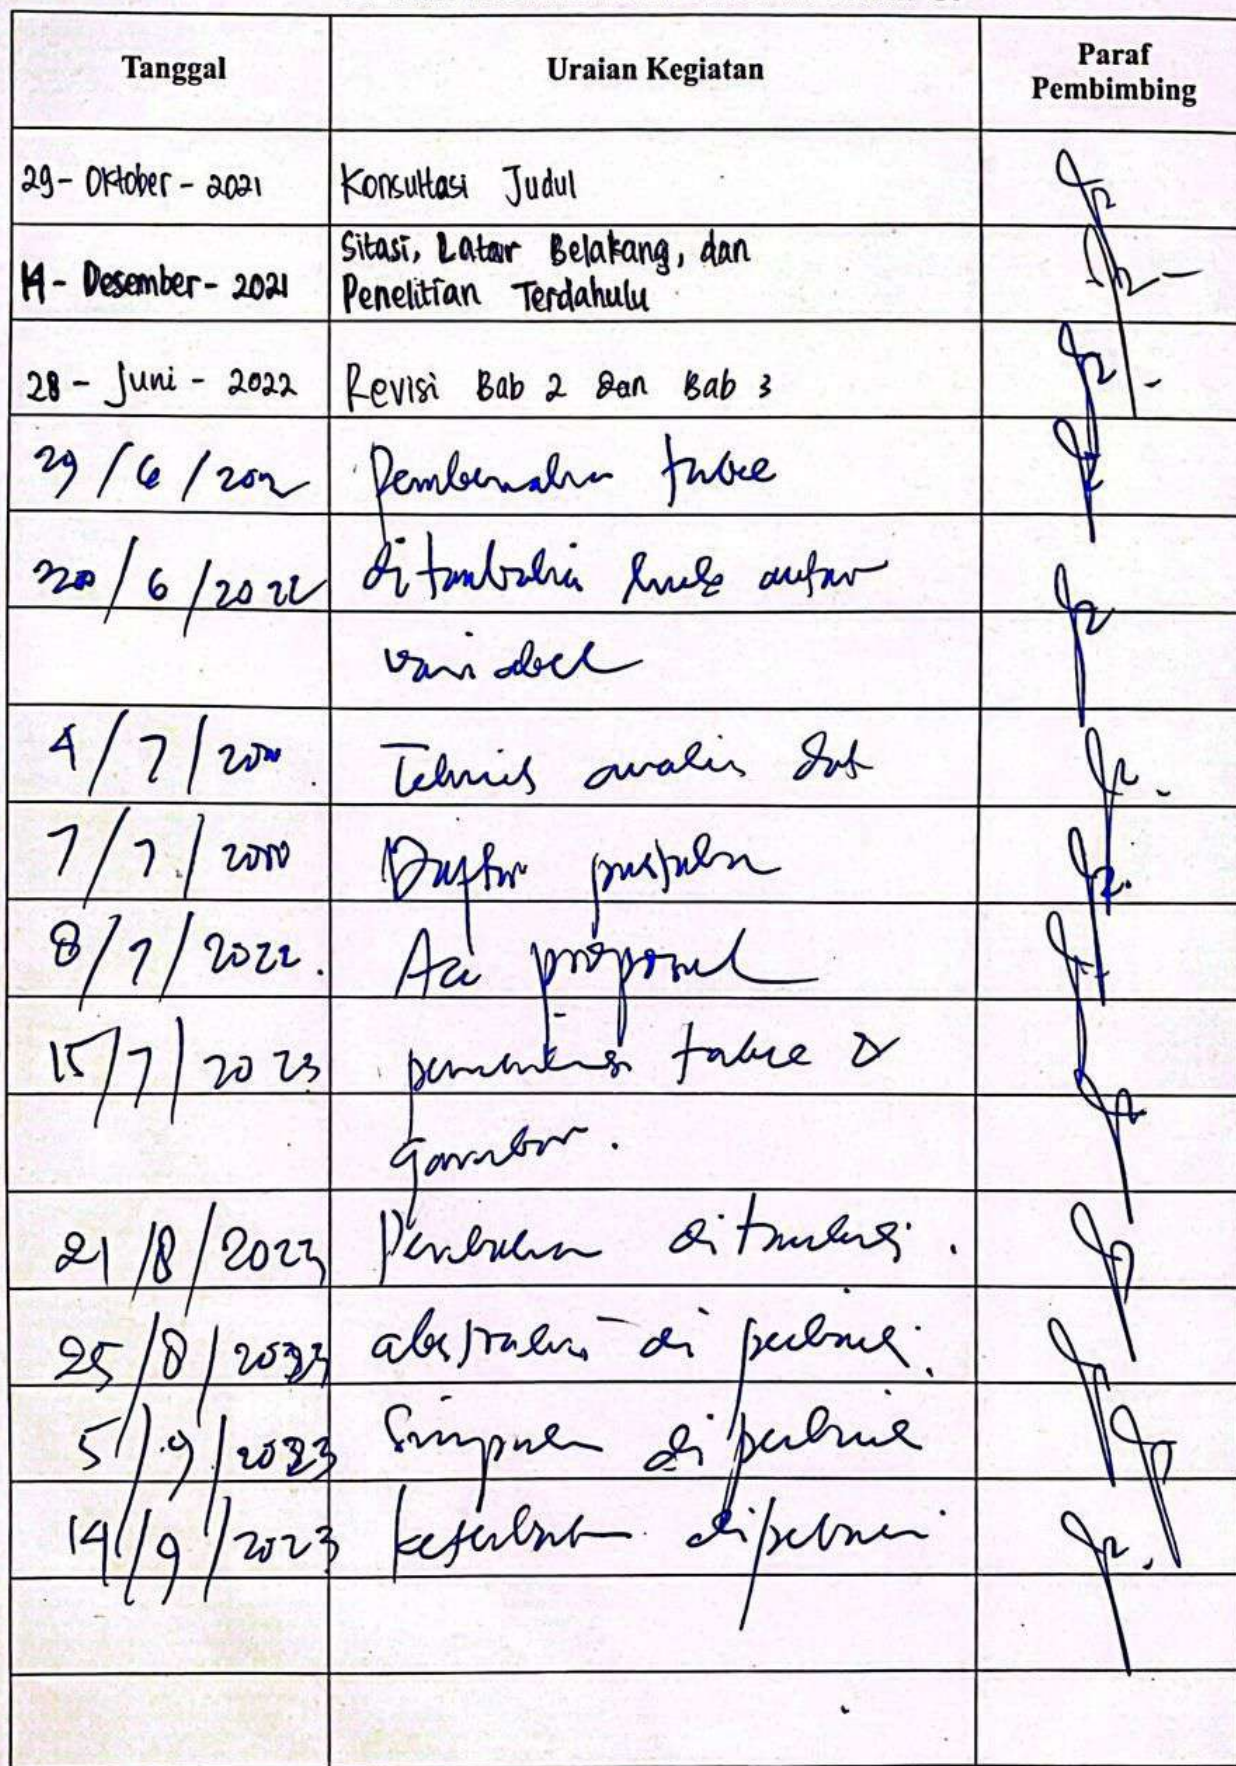 Tanggal Uraian Kegiatan Paraf Pembimbing
29 - Oktober - 2021 Konsultasi Judul
14 - Desember - 2021 Sitasi, Latar Belakang, dan
Penelitian Terdahulu
28 - Juni - 2022 Revisi Bab 2 dan Bab 3
29 / 6 / 2022 Pembenahan tabel
/ 6 / 2022 ditambahi antar
variabel
4 / 7 / Teknis analisis data
7 / 7 / Daftar pustaka
8 / 7 / 2022. Acc proposal
15 / 7 / 2023 tabel &
gambar.
21 / 8 / 2023
25 / 8 / 2023 abstraksi di perbaiki.
5 / 9 / 2023 Simpulan di perbaiki
14 / 9 / 2023 diperbaiki